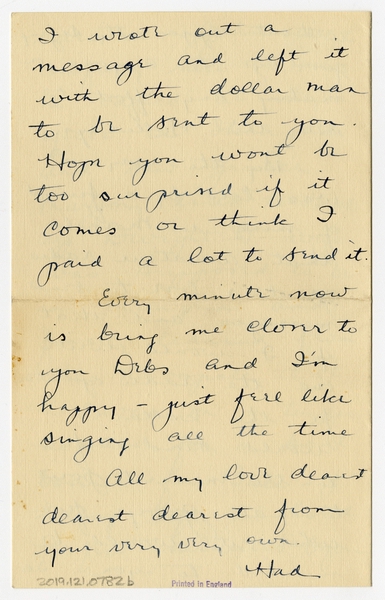 I wrote out a
message and left it
with the dollar man
to be sent to you.
Hope you wont be
too surprised if it
comes or think I
paid a lot to send it.
Every minute now
is bring me closer to
you Debs and I'm
happy – just feel like
singing all the time
All my love dearest
dearest dearest from
your very very own.
Had
2019.121.0782b
Printed in England